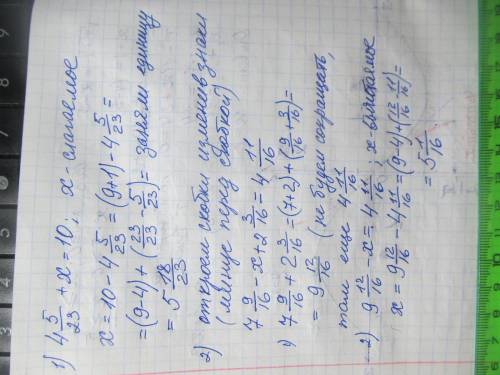 1) 4 5/23 + x = 10; x - слагаемое
x = 10 - 4 5/23 = (9+1) - 4 5/23 =
= (9-4) + (23/23 - 5/23) = заняли единицу
= 5 18/23
2) откроем скобки изменив знаки
(минус перед скобкой)
7 9/16 - x + 2 3/16 = 4 11/16
1) 7 9/16 + 2 3/16 = (7+2) + (9/16 + 3/16) =
= 9 12/16 (не будем сокращать,
там еще 4 11/16
2) 9 12/16 - x = 4 11/16; x вычитаемое
x = 9 12/16 - 4 11/16 = (9-4) + (12/16 - 11/16) =
= 5 1/16